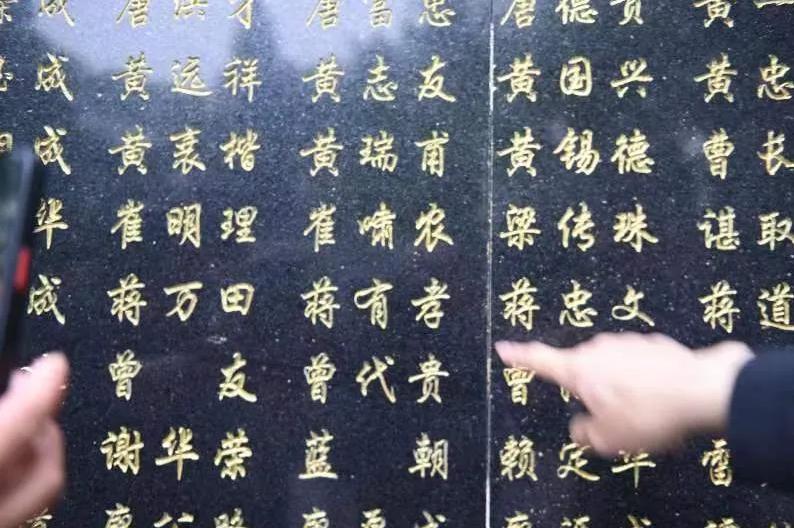 成 唐洪才 唐富忠 唐德贵 黄
成 黄远祥 黄志友 黄国兴 黄忠
成 黄衰楷 黄瑞甫 黄锡德 曹长
华 崔明理 崔啸农 梁传珠 谌取
成 蒋万田 蒋有孝 蒋忠文 蒋道
曾友 曾代贵 曾
谢华荣 蓝朝 赖定华 雷